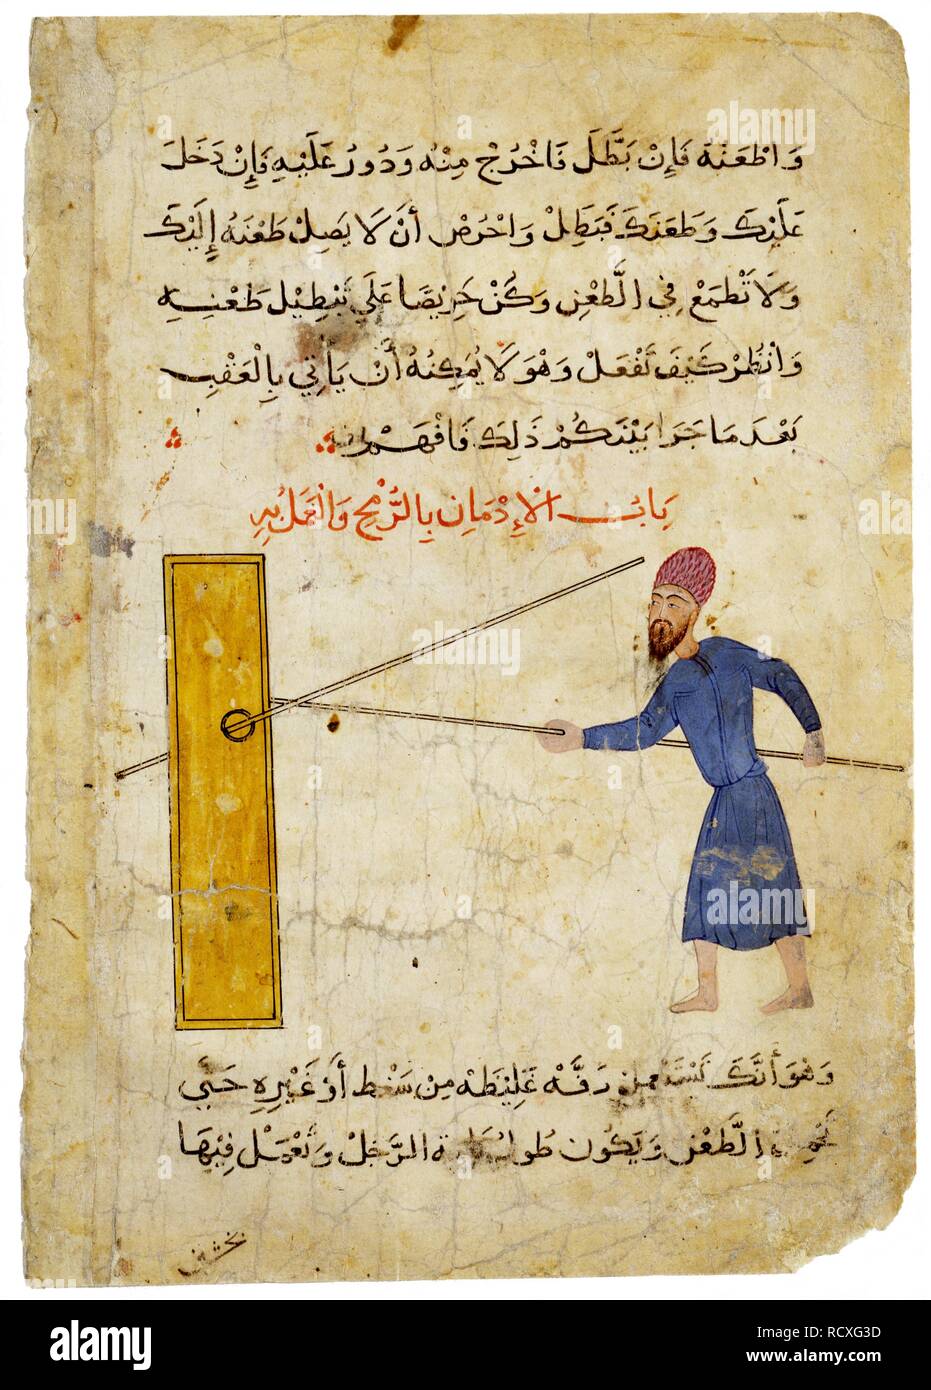 وَاطْعَنْهُ فَإِنْ بَطَّلَ فَاخْرُجْ مِنْهُ وَدُورْ عَلَيْهِ فَإِنْ دَخَلَ
عَلَيْكَ وَطَعَنَكَ فَبَطِلْ وَاحْرُصْ أَنْ لَا يَصِلْ طَعْنَهُ إِلَيْكَ
وَلَا تَطْمَعْ فِي الَّطْعْنِ وَكُنْ حَرِيْصًا عَلَي تَبْطِيْل طَعْنِهِ
وَانْظُرْ كَيْفَ تَفْعَلْ وَهْوَ لَا يُمَكِنُهُ أَنْ يَأْتِي بِالْعَقْبِ
بَعْدَ مَا جَرَا بَيْنَكُمْ ذَلِكَ فَافْهَمْ
بَابُ الْإِدْمَانِ بِالرُّمْحِ وَالْعَمَلُ بِهِ
وَهْوَ أَنَّكَ تَسْتَعْمِلْ دَفَّهْ غَلِيْظَهْ مِنْ سَنْط أَوْ غَيْرِهِ حَتَّي
الَّطْعْنِ وَيَكُون طُولُهَا قَامَة الرَّجُلْ وَتَعْمَلْ فِيْهَا
alamy
alamy
Image ID: RCXG3D
www.alamy.com